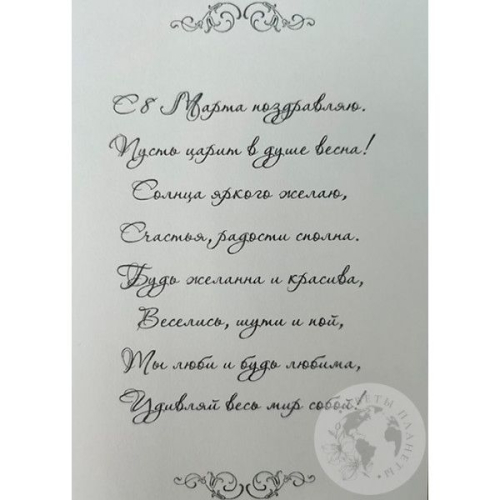 С 8 Марта поздравляю.
Пусть царит в душе весна!
Солнца яркого желаю,
Счастья, радости сполна.
Будь желанна и красива,
Веселись, шути и пой,
Ты люби и будь любима,
Удивляй весь мир собой!
ЦВЕТЫ ПЛАНЕТЫ